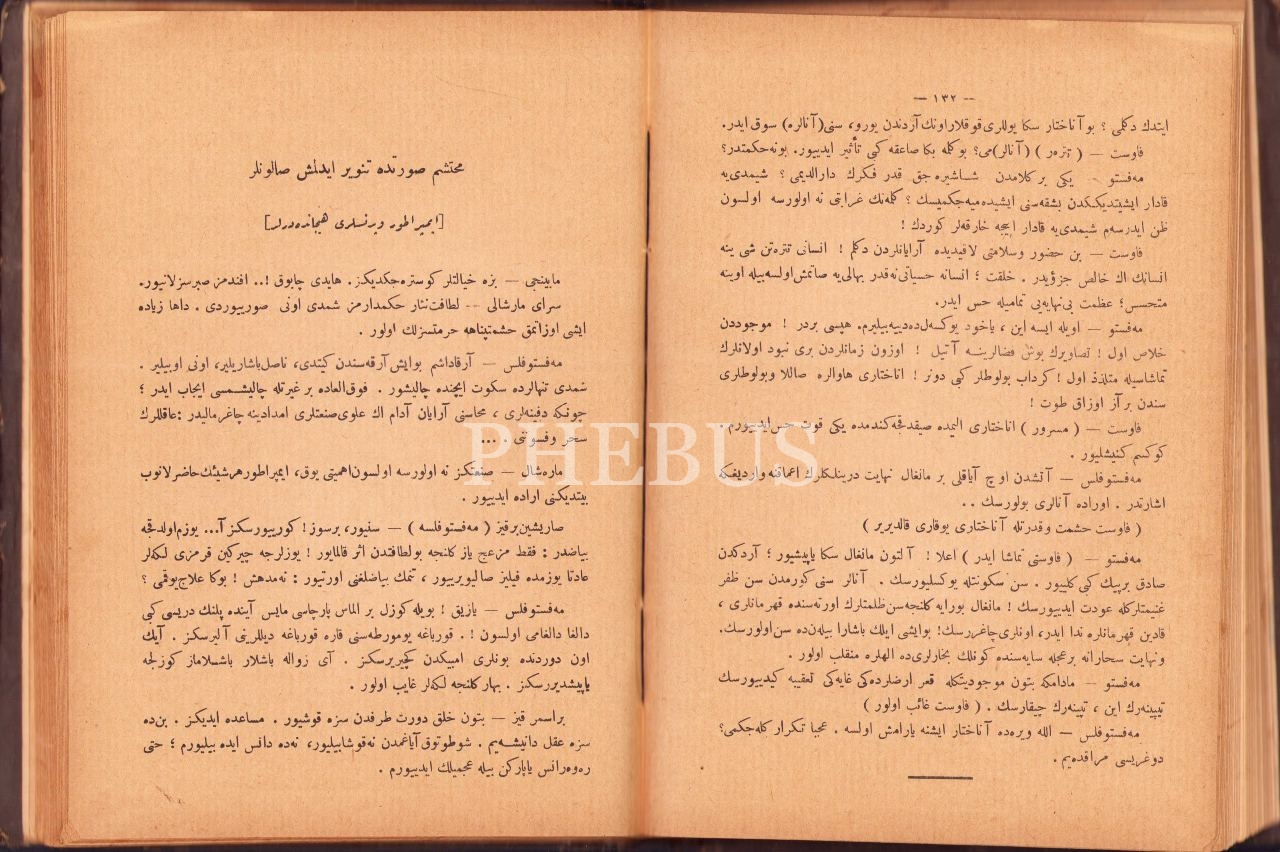 — ١٣٢ —
ايتدك دكلمى ؟ بو آناختار سكا يوللرى قوقلار اونك آردندن يورو، سنى (آنالره) سوق ايدر.
فاوست — ( تتره‌ر ) (آنالر)مى؟ بو كله بكا صاعقه كبى تأثير ايدييور. بونه حكمتدر؟
مه‌فستو — يكى بر كلامدن شاشيره‌جق قدر فكرك دارالديمى ؟ شيمدى‌يه
قادار ايشيتديككدن بشقه‌سنى ايشيده‌ميه‌جكميسك ؟ كله‌نك غرابتى نه اولورسه اولسون
ظن ايدرسه‌م شيمدى‌يه قادار ايجه خارقه‌لر كوردك !
فاوست — بن حضور وسلامتى لاقيديده آرايانلردن دكلم ! انسانى تتره‌تن شى ينه
انسانك اك خالص جزؤيدر . خلقت ؛ انسانه حسياتى نه‌قدر بهالى‌يه صاتمش اولسه‌بيله اوينه
متحسس؛ عظمت بى‌نهايه‌يى تماميله حس ايدر.
مه‌فستو — اويله ايسه اين ، ياخود يوكسل ده‌دييه‌بيليرم. هپسى بردر ! موجوددن
خلاص اول ! تصاويرك بوش فضالرينه آتيل ! اوزون زمانلردن برى نبود اولانلرك
تماشاسيله متلذذ اول ! كرداب بولوطلر كبى دونر ! آناختارى هاوالره صاللا وبولوطلرى
سندن بر آز اوزاق طوت !
فاوست — ( مسرور ) آناختارى اليمده صيقدقجه كندمده يكى قوت حس ايدييورم .
كوكسم كنيشليور .
مه‌فستوفلس — آتشدن اوچ آياقلى بر مانغال نهايت درينلكلرك اعماقنه وارديغكه
اشارتدر . اوراده آنالرى بولورسك . .
( فاوست حشمت وقدرتله آناختارى يوقارى قالديرير )
مه‌فستو — ( فاوستى تماشا ايدر ) اعلا ! آلتون مانغال سكا ياپيشيور ؛ آردكدن
صادق بر پيك كبى كلييور . سن سكونتله يوكسليورسك . آنالر سنى كورمدن سن ظفر
غنيمتلركله عودت ايدييورسك ! مانغال بورايه كلنجه سن ظلمتلرك اورته‌سنده قهرمانلرى ،
قادين قهرمانلره ندا ايدر، اونلرى چاغيررسك! بوايشى ايلك باشارا بيله‌ن‌ده سن اولورسك.
ونهايت سحارانه بر عجله سايه‌سنده كونلك بخارلرى‌ده الهلره منقلب اولور .
مه‌فستو — مادامكه بتون موجوديتكله قعر ارضلرده‌كى غايه‌كى تعقيبه كيدييورسك
تيپينه‌رك اين ، تپينه‌رك چيقارسك . ( فاوست غائب اولور )
مه‌فستوفلس — الله ويره‌ده آناختار ايشنه يارامش اولسه . عجبا تكرار كله‌جكمى؟
دوغريسى مراقده‌يم .
محتشم صورتده تنوير ايدلمش صالونلر
[ايمپراطور وپرنسلرى هيجانده‌درلر]
مابينجى — بزه خيالتلر كوستره‌جكديكز. هايدى چابوق !.. افندمز صبرسزلانيور.
سراى مارشالى — لطافت‌نثار حكمدارمز شمدى اونى صورييوردى . داها زياده
ايشى اوزاتمق حشمتپناهه حرمتسزلك اولور .
مه‌فستوفلس — آرقاداشم بوايش آرقه‌سندن كيتدى، ناصل‌باشاريلير، اونى اوبيلير .
شمدى تنهالرده سكوت ايچنده چاليشور . فوق‌العاده بر غيرتله چاليشمسى ايجاب ايدر ؛
چونكه دفينه‌لرى ، محاسنى آرايان آدام اك علوى صنعتلرى امدادينه چاغرماليدر :عاقللرك
سحر وفسوننى . ...
ماره‌شال — صنعتكز نه اولورسه اولسون اهميتى يوق، ايمپراطور هرشيئك حاضرلانوب
بيتديكنى اراده ايدييور .
صاريشين بر قيز ( مه‌فستوفلسه ) — سنيور، برسوز! كورييورسكز آ... يوزم اولدقجه
بياضدر : فقط مزعج ياز كلنجه بولطافتدن اثر قالمايور ! يوزلرجه چيركين قرمزى لكه‌لر
عادتا يوزمده فيليز صاليويرييور ، تنمك بياضلغنى اورتيور : نه‌مدهش ! بوكا علاج يوقمى ؟
مه‌فستوفلس — يازيق ! بويله كوزل بر الماس پارچاسى مايس آينده پلنك دريسى كبى
دالغا دالغامى اولسون ! . قورباغه يومورطه‌سنى قاره قورباغه ديللرينى آليرسكز . آيك
اون دوردنده بونلرى امبيكدن كچيريرسكز . آى زواله باشلار باشلاماز كوزلجه
ياپيشديررسكز . بهار كلنجه لكه‌لر غايب اولور .
براسمر قيز — بتون خلق دورت طرفدن سزه قوشيور . مساعده ايديكز . بن‌ده
سزه عقل دانيشه‌يم . شوطوتوق آياغمدن نه‌قوشابيليور، نه‌ده دانس ايده بيليورم ؛ حتى
ره‌وه‌رانس ياپاركن بيله عجميلك ايدييورم .
PHEBUS